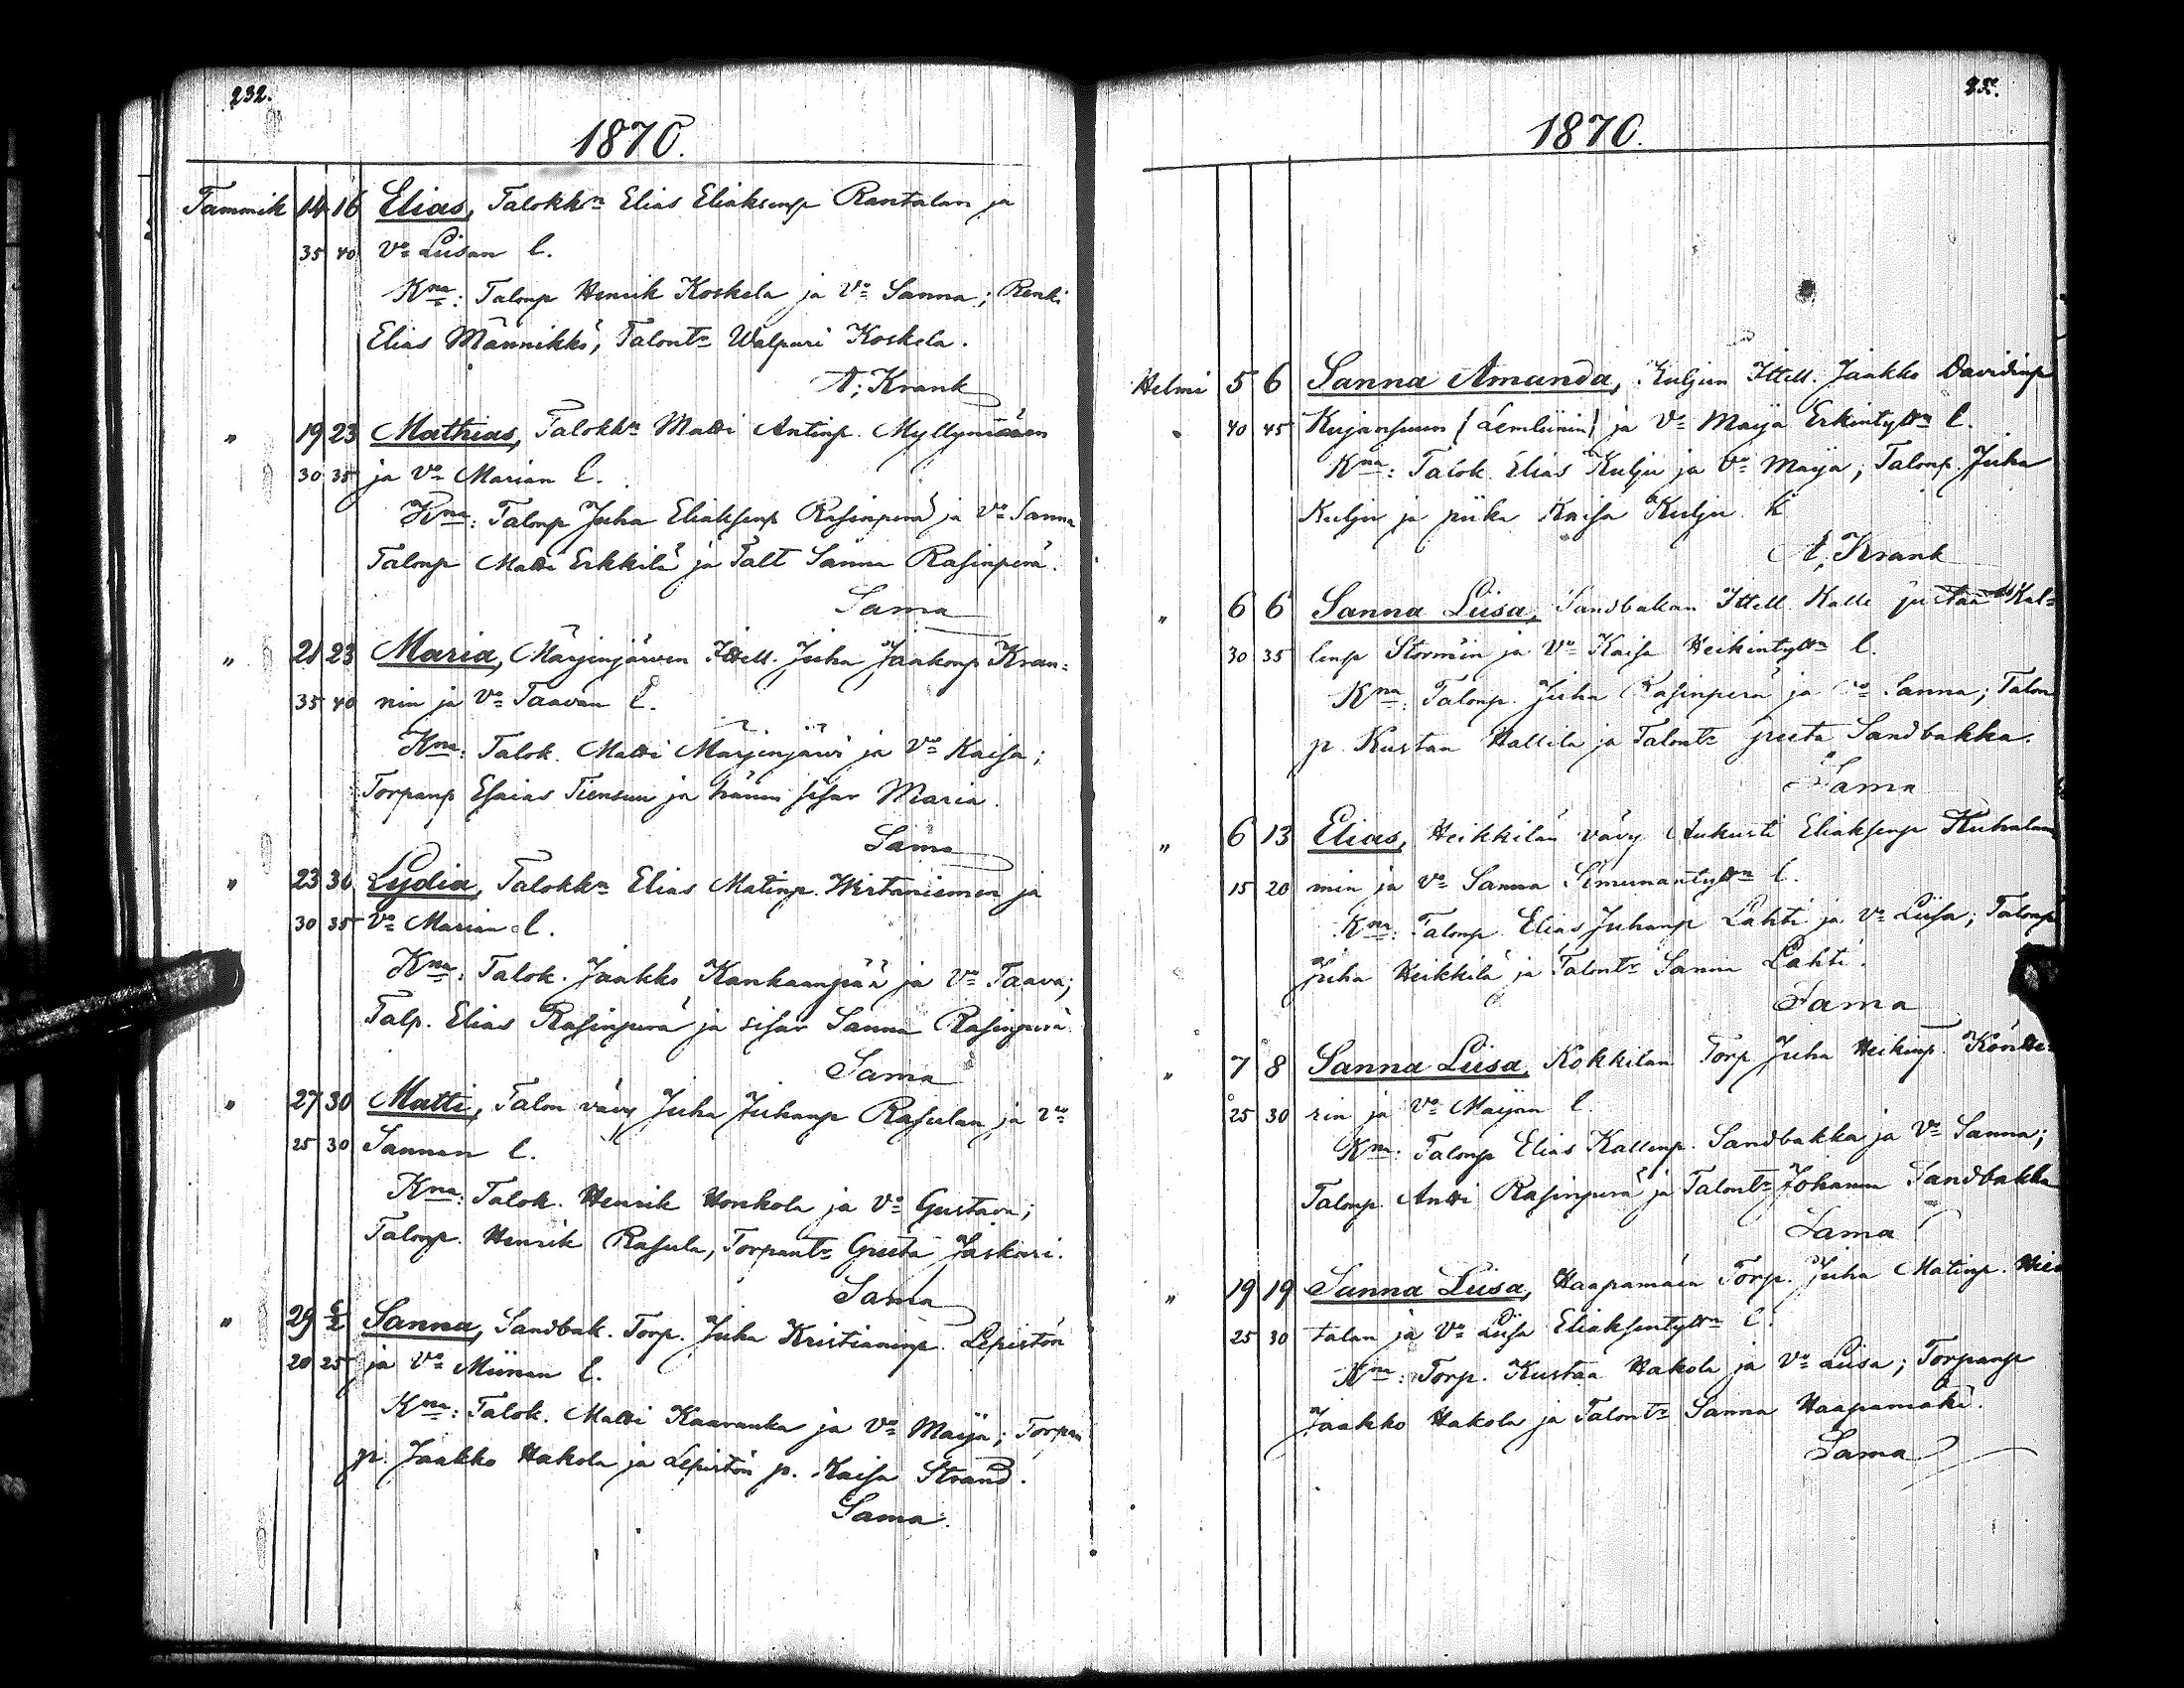 232.
1870.
Tammik 14 16 Elias, Talokkn Elias Eliaksenp Rantalan ja
35 40 Vo Liisan l.
Kna: Talonp Henrik Koskela ja Vo Sanna; Renki
Elias Männikkö, Talontr Walpuri Koskela.
A; Krank
" 19 23 Mathias, Talokkn Matti Antinp. Myllymäen
30 35 ja Vo Marian l.
Kna: Talonp Juha Eliaksenp Rasinperä ja Vo Sanna
Talonp Matti Erkkilä ja Talt Sanna Rasinperä.
Sama
" 21 23 Maria, Marjenjärwen Ittell. Juha Jaakonp Kran=
35 40 nin ja Vo Taavan l.
Kna: Talok. Matti Marjenjärwi ja Vo Kaisa;
Torpanp Esaias Tiensuu ja hänen sisar Maria.
Sama
" 23 30 Lydia, Talokkn Elias Matinp. Wirtaniemen ja
30 35 Vo Marian l.
Kna: Talok. Jaakko Kankaanpää ja Vo Taava;
Talp. Elias Rasinperä ja sisar Sanna Rasinperä.
Sama
" 27 30 Matti, Talon vävy Juha Juhanp Rasulan ja Vo
25 30 Sannan l.
Kna: Talok. Henrik Honkola ja Vo Gustava;
Talonp. Henrik Rasula, Torpantr Greeta Jaskari.
Sama
" 29 6/2 Sanna, Sandbak. Torp. Juha Kristianinp. Lepistön
20 25 ja Vo Miinan l.
Kna: Talok. Matti Kaaranka ja Vo Maija; Torpan
p. Jaakko Hakola ja Lepistön p. Kaisa Strand.
Sama.
1870.
Helmi 5 6 Sanna Amanda, Kuljun Ittell. Jaakko Davidinp
40 45 Kujanpuun (Lemliinin) ja Vo Maija Erkintyttn l.
Kna: Talok. Elias Kulju ja Vo Maija; Talonp. Juha
Kulju ja piika Kaisa Kulju.
A; Krank
" 6 6 Sanna Liisa, Sandbakan Ittell Kalle Kal=
30 35 lenp Stormin ja Vo Kaisa Heikintyttn l.
Kna: Talonp. Juha Rasinperä ja Vo Sanna; Talon
p. Kustaa Hallila ja Talontr Greeta Sandbakka.
Sama
" 6 13 Elias, Heikkilän vävy Aukusti Eliaksenp Kuhalam
15 20 min ja Vo Sanna Simunantyttn l.
Kna: Talonp. Elias Juhanp Lahti ja Vo Liisa; Talonp
Juha Heikkilä ja Talontr Sanna Lahti.
Sama
" 7 8 Sanna Liisa, Kokkilan Torp Juha Heikinp. Köntte=
25 30 rin ja Vo Maijan l.
Kna: Talonp Elias Kallenp. Sandbakka ja Vo Sanna;
Talonp. Antti Rasinperä ja Talontr Johanna Sandbakka
Sama
" 19 19 Sanna Liisa, Haapamäen Torp. Juha Matinp. Hie
25 30 talan ja Vo Liisa Eliaksentyttn l.
Kna: Torp. Kustaa Hakola ja Vo Liisa; Torpanp
Jaakko Hakola ja Talontr Sanna Haapamäki.
Sama